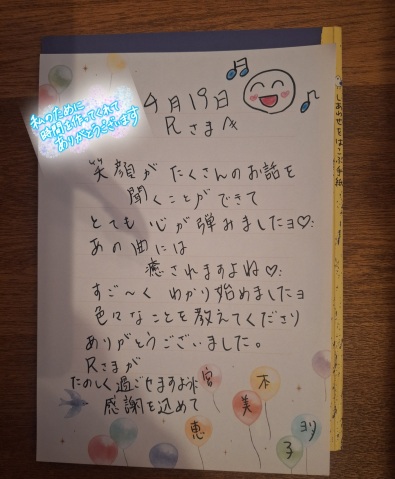 4月19日
Rさまへ
私のために
時間を作ってくれて
ありがとうございます
笑顔がたくさんのお話を
聞くことができて
とても心が弾みましたョ♡
あの曲には
癒されますよね♡
すご～くわかり始めましたョ
色々なことを教えてくださり
ありがとうございました。
Rさまが
たのしく過ごせますよぅ
感謝を込めて
宮
木
美
恵
子
ヨリ
しあわせをはこぶ手紙